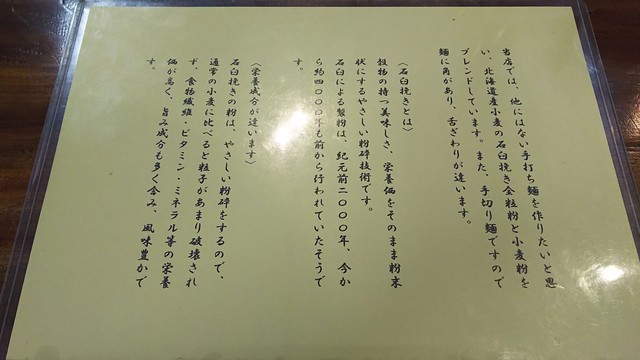 当店では、他にはない手打ち麺を作りたいと思
い、北海道産小麦の石臼挽き全粒粉と小麦粉を
ブレンドしています。また、手切り麺ですので
麺に角があり、舌ざわりが違います。
〈石臼挽きとは〉
穀物の持つ美味しさ、栄養価をそのまま粉末
状にするやさしい粉砕技術です。
石臼による製粉は、紀元前二〇〇〇年、今か
ら約四〇〇〇年も前から行われていたそうで
す。
〈栄養成分が違います〉
石臼挽きの粉は、やさしい粉砕をするので、
通常の小麦に比べると粒子があまり破壊され
ず、食物繊維・ビタミン・ミネラル等の栄養
価が高く、旨み成分も多く含み、風味豊かで
す。